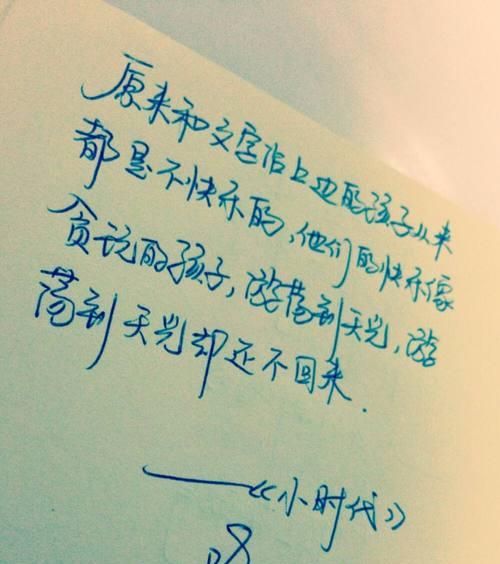 原来和文字沾上边的孩子从来
都是不快乐的,他们的快乐像
贪玩的孩子,游荡到天光,游
荡到天光却还不回来.
——《小时代》